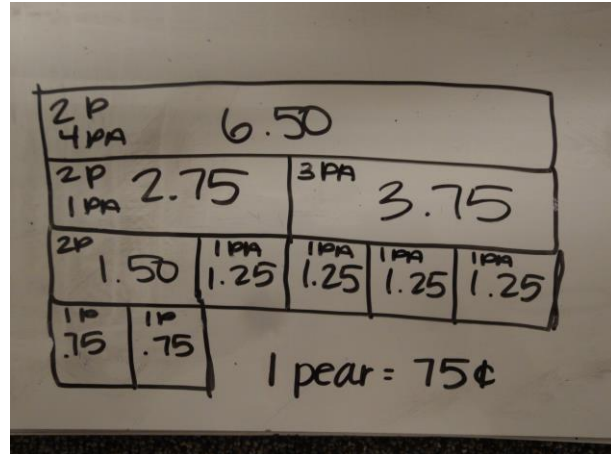 2 P
4 PA
6.50
2 P
1 PA
2.75
3 PA
3.75
2P
1.50
1 PA
1.25
1 PA
1.25
1 PA
1.25
1 PA
1.25
1 P
.75
1 P
.75
1 pear = 75¢